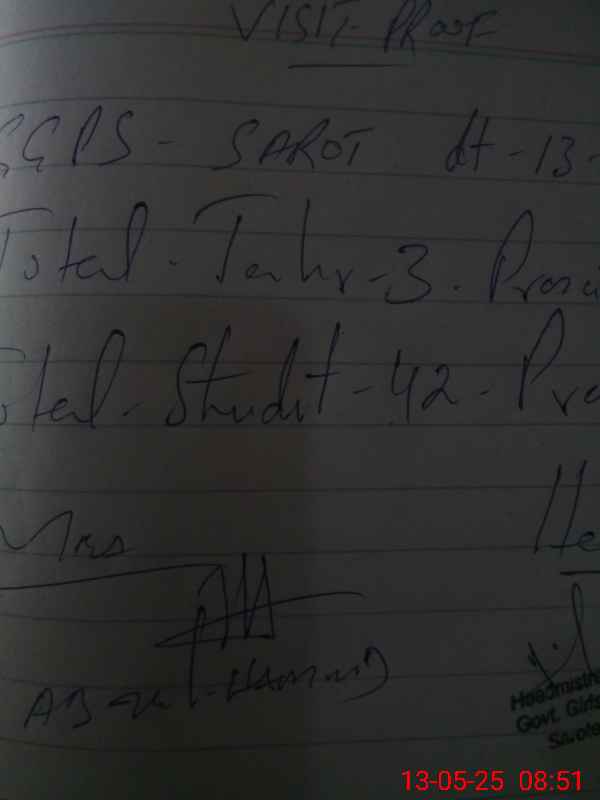 VISIT PROOF
GGPS - SAROT dt - 13 -
Total - Teahr - 3 - Prese
Total - Studit - 42 - Pre
Mrs He
Abdul Hameed
Headmistre
Govt. Girls
Sarote
13-05-25 08:51